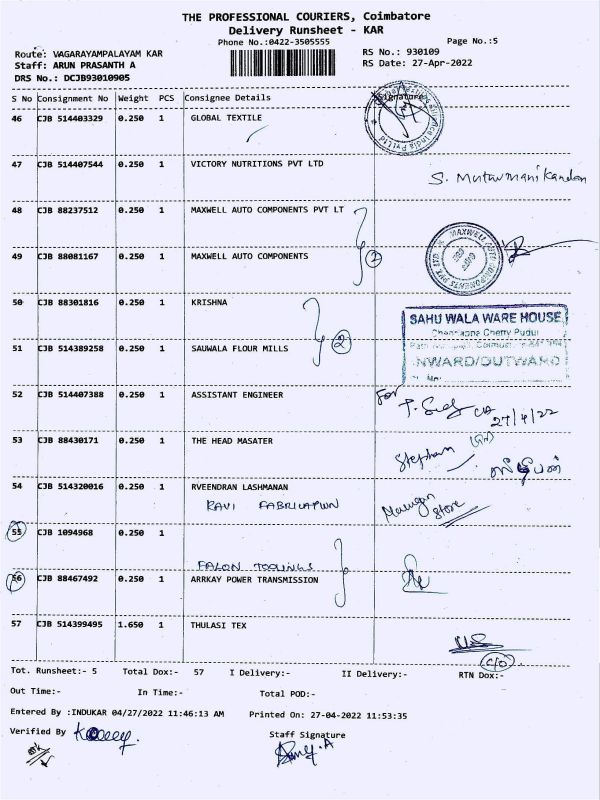 THE PROFESSIONAL COURIERS, Coimbatore
Delivery Runsheet - KAR
Phone No.:0422-3505555
Page No.:5
Route: VAGARAYAMPALAYAM KAR
RS No.: 930109
Staff: ARUN PRASANTH A
RS Date: 27-Apr-2022
DRS No.: DCJB93010905
S No Consignment No Weight PCS Consignee Details Signature
46 CJB 514403329 0.250 1 GLOBAL TEXTILE
47 CJB 514407544 0.250 1 VICTORY NUTRITIONS PVT LTD
S. Muthumanikandan
48 CJB 88237512 0.250 1 MAXWELL AUTO COMPONENTS PVT LT
49 CJB 88081167 0.250 1 MAXWELL AUTO COMPONENTS
2
MAXWELL AUTO COMPONENTS PVT LTD
50 CJB 88301816 0.250 1 KRISHNA
SAHU WALA WARE HOUSE
Cherry Pudur
INWARD/OUTWARD
51 CJB 514389258 0.250 1 SAUWALA FLOUR MILLS
2
52 CJB 514407388 0.250 1 ASSISTANT ENGINEER
For
27/4/22
53 CJB 88430171 0.250 1 THE HEAD MASATER
Stephan
ஸ்டீபன்
54 CJB 514320016 0.250 1 RVEENDRAN LASHMANAN
RAVI FABRICATION
Store
55 CJB 1094968 0.250 1
FALON TOOLINGS
56 CJB 88467492 0.250 1 ARRKAY POWER TRANSMISSION
57 CJB 514399495 1.650 1 THULASI TEX
C/O
Tot. Runsheet:- 5 Total Dox:- 57 I Delivery:- II Delivery:- RTN Dox:-
Out Time:- In Time:- Total POD:-
Entered By :INDUKAR 04/27/2022 11:46:13 AM Printed On: 27-04-2022 11:53:35
Verified By
Staff Signature